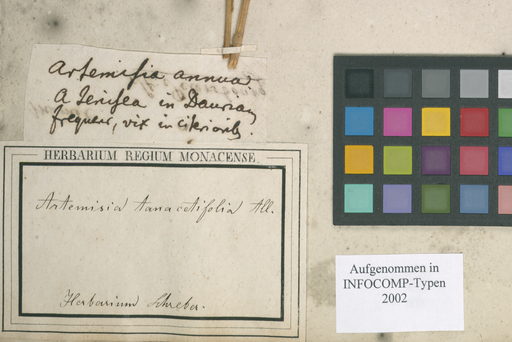 Artemisia annua
A Jenisea in Dauriam
frequens, vix in citerioribs.
HERBARIUM REGIUM MONACENSE.
Artemisia tanacetifolia All.
Herbarium Schreber.
Aufgenommen in
INFOCOMP-Typen
2002